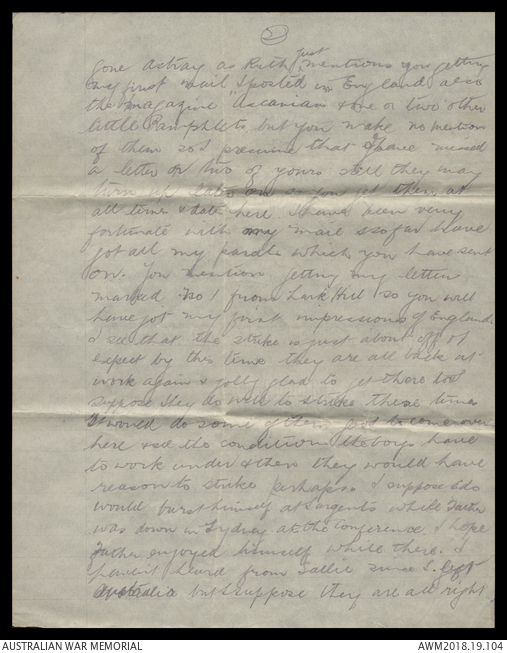 2
gone astray as Ruth just mentions you getting
my first mail I posted in England also
the magazine "Ascanian" & one or two other
little Pamphlets but you make no mention
of them so I presume that I have missed
a letter or two of yours still they may
turn up later on as you get them at
all times & dates here I have been very
fortunate with my mail & so far have
got all my parcels which you have sent
on. You mention getting my letter
marked No 1 from Lark Hill so you will
have got my first impressions of England.
I see that the strike is just about off & I
expect by this time they are all back at
work again & jolly glad to get there too I
suppose they do well to strike these times
I would do some of them good to come over
here & see the conditions the boys have
to work under & then they would have
reason to strike perhaps. I suppose
would burst himself at Sargents while Father
was down in Sydney at the Conference. I hope
Father enjoyed himself while there. I
haven't heard from Sallie since I left
Australia but I suppose they are all right
AUSTRALIAN WAR MEMORIAL
AWM2018.19.104